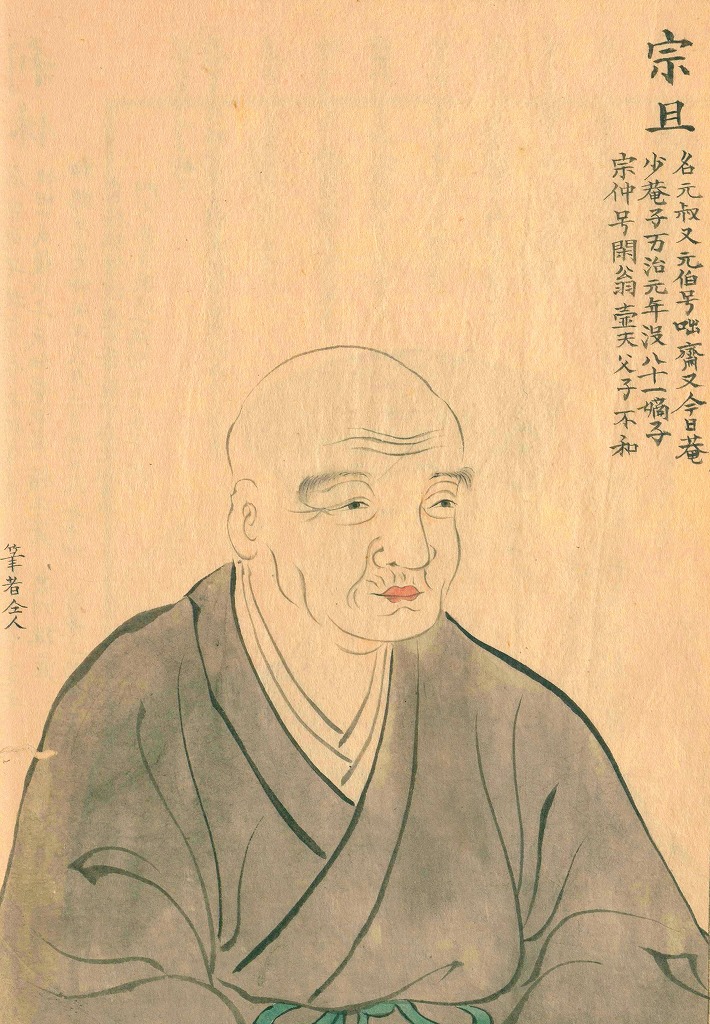 宗旦
名元叔又元伯号咄齋又今日菴
少菴子万治元年没八十一嫡子
宗仲号閑翁壷天父子不和
筆者仝人